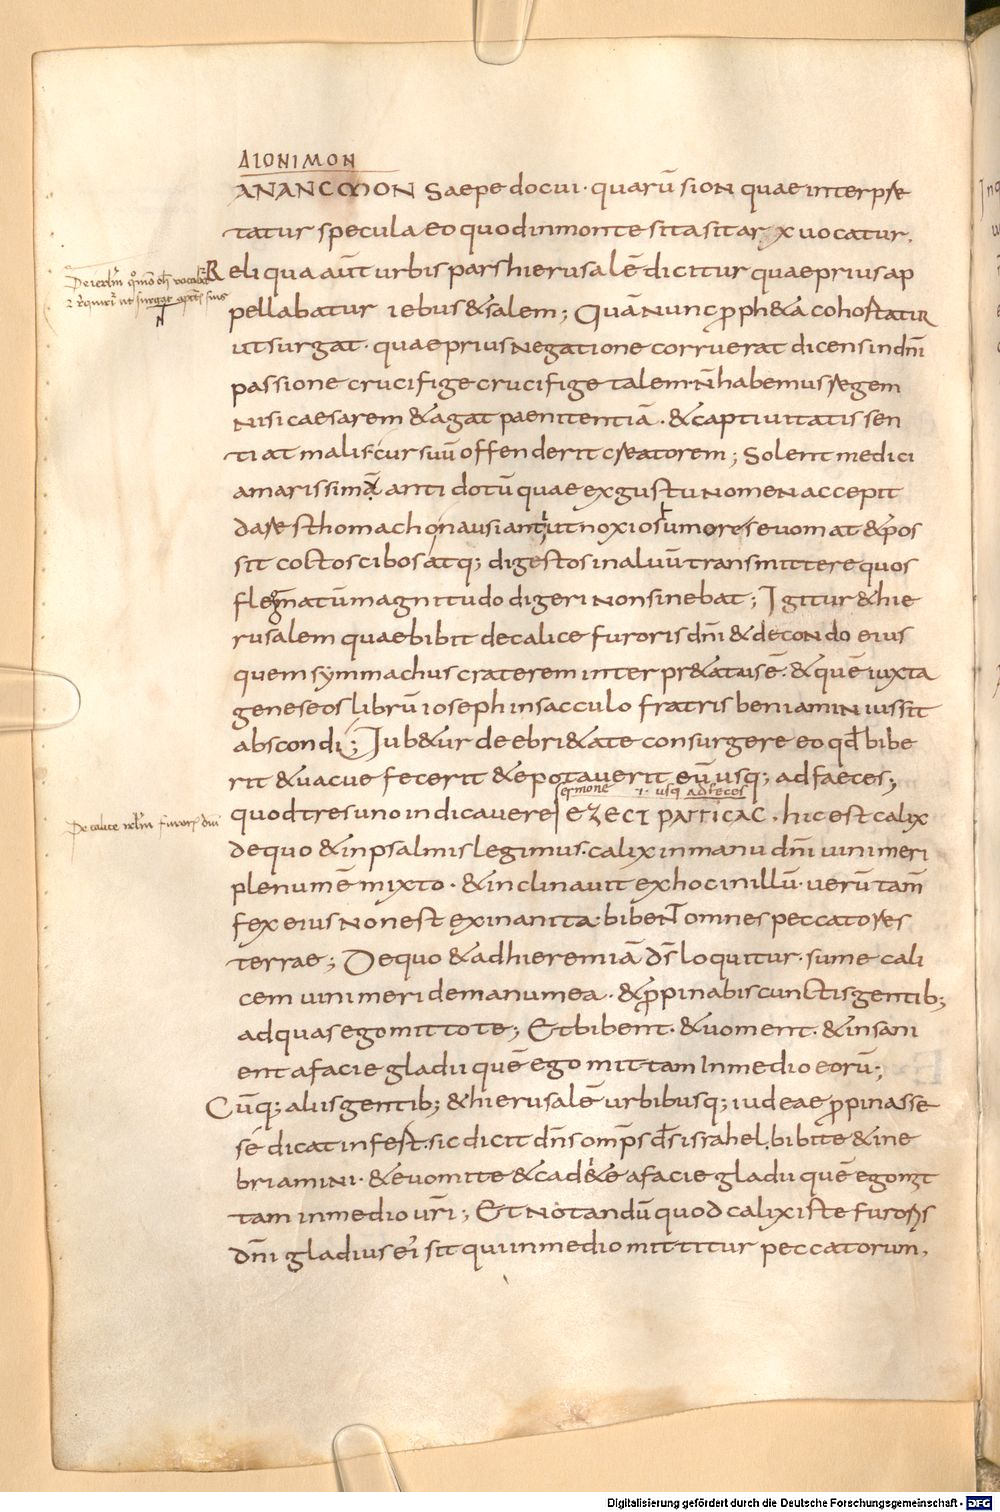 ΔΙΟΝΙΜΟΝ
ANANCMON Saepe docui · quarū sion quae interpre
tatur specula eo quod in monte sita sit arx uocatur.
Reliqua aūt urbis pars hierusalē dicitur quae prius ap
pellabatur iebus & salem; Quā nunc ꝓph&a cohortatur
ut surgat · quae prius negatione corruerat dicens in dn̄i
passione crucifige crucifige talem · n̄ habemus regem
nisi caesarem & agat paenitentiā · & captiuitatis sen
tiat malis cur suū offenderit creatorem; Solent medici
amarissimā anti dotū quae ex gustu nomen accepit
dare sthomacho nausianti ut noxios umores euomat & pos
sit coctos cibos atq; digestos in aluū transmittere quos
flegmatū magnitudo digeri non sinebat; Igitur & hie
rusalem quae bibit de calice furoris dn̄i & de condo eius
quem symmachus craterem interpr&atus ē · & quē iuxta
geneseos librū ioseph in sacculo fratris beniamin iussit
abscondi; Iub&ur de ebri&ate consurgere eo qd̄ bibe
rit & uacue fecerit & epotauerit eū usq; ad faeces;
sermone .i. usq ad feces
quod tres uno indicauere
hic est calix
de quo & in psalmis legimus · calix in manu dn̄i uini meri
plenum ē mixto · & inclinauit ex hoc in illū · uerū tam̄
fex eius non est exinanita · bibent omnes peccatores
terrae; De quo & ad hieremiā dn̄s loquitur · sume cali
cem uini meri de manu mea · & ꝓpinabis cunctis gentib;
ad quas ego mitto te; Et bibent · & uoment · & insani
ent a facie gladii quē ego mittam In medio eorū;
Cūq; aliis gentib; & hierusalē urbibusq; iudeae ꝓpinasse
se dicat infest · sic dicit dn̄s om̄ps d̄s israhel · bibite & ine
briamini · & euomite & cadite a facie gladii quē ego mit
tam in medio ur̄i; Et notandū quod calix iste furoris
dn̄i gladius ei sit qui in medio mittitur peccatorum,
De calice furoris dn̄i